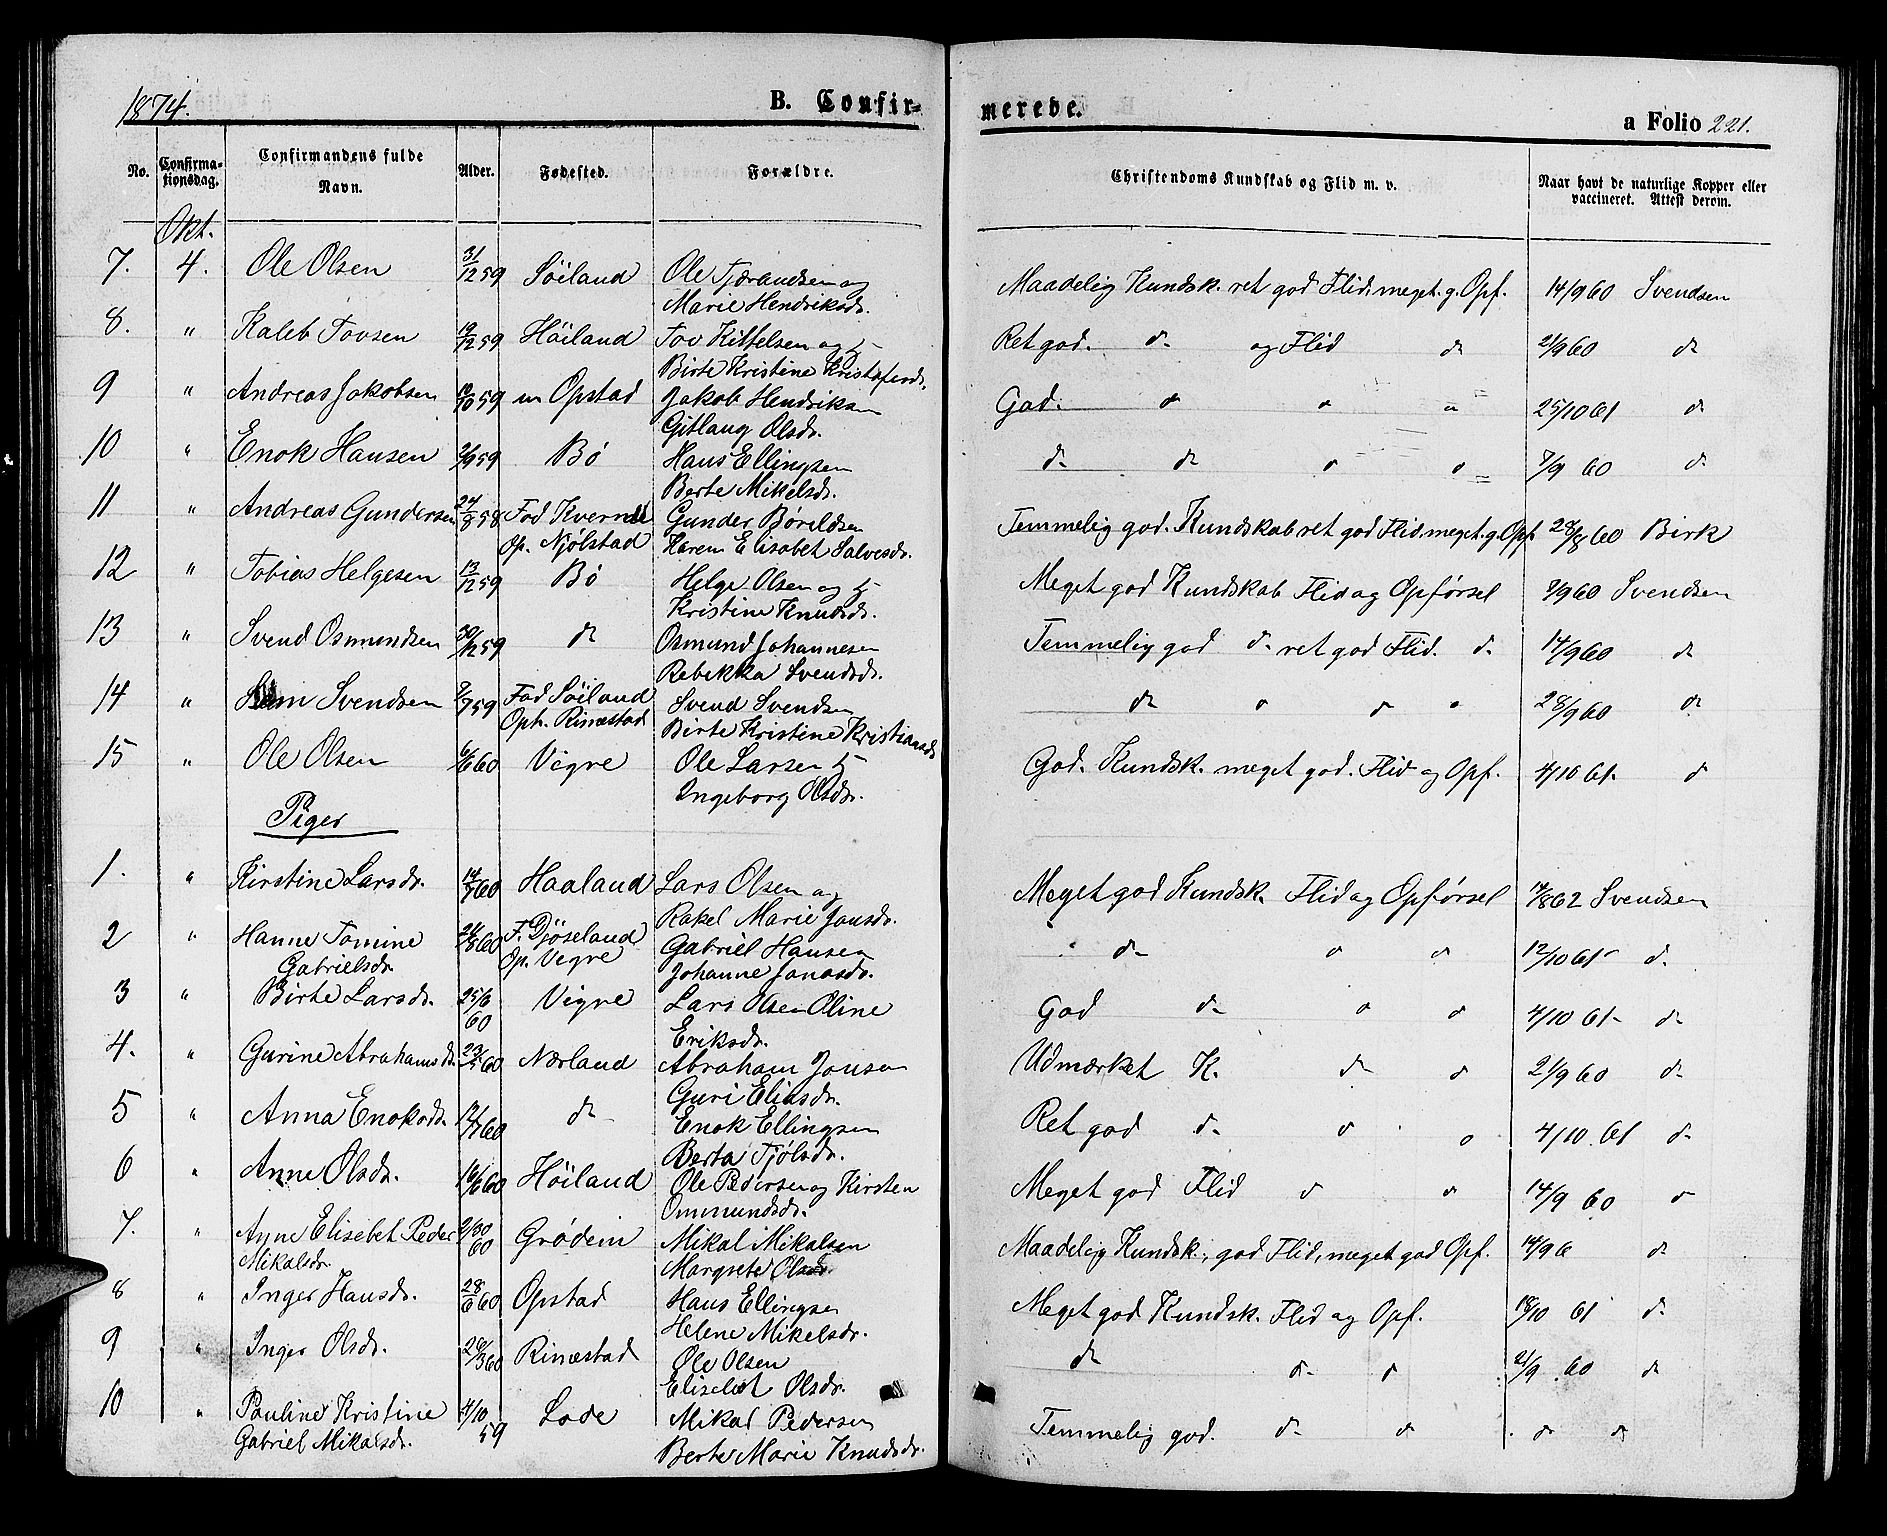 1874.
B. Confir-
merede.
a Folio 221.
No.
Confirma-
tionsdag.
Confirmandens fulde
Navn.
Alder.
Fødested.
Forældre.
Christendoms Kundskab og Flid m. v.
Naar havt de naturlige Kopper eller
vaccineret. Attest derom.
Okt.
7. 4. Ole Olsen 31/12 59 Søiland Ole Tjærandsen og
Marie Hendriksdr.
Maadelig Kundsk. ret god Flid, meget g. Opf. 14/9 60 Svendsen
8. " Kaleb Tovsen 19/12 59 Høiland Tov Kittelsen og h
Birte Kristine Kristofersdr.
Ret god. do og Flid do 2/9 60 do
9 " Andreas Jakobsen 59 Opstad Jakob Hendriksen
Gitlaug Olsdr.
God. do do " 25/10 61 do
10 " Enok Hansen 2/9 59 Bø Hans Ellingsen
Berte Mikelsdr.
do do do do 7/9 60 do
11 " Andreas Gundersen 24/8 58 Fød Kvernel
Op. Njølstad
Gunder Børildsen
Karen Elisabet Salvesdr.
Temmelig god. Kundskab ret god Flid, meget. g. Opf 28/8 60 Birk
12 " Tobias Helgesen 13/12 59 Bø Helge Olsen og h
Kristine Knudsdr.
Meget god Kundskab Flid og Opførsel 7/9 60 Svendsen
13 " Svend Osmundsen 30/12 59 do Osmund Johannesen
Rebekka Svendsdr.
Temmelig god do ret god Flid. do 14/9 60 do
14 " Svendsen 2/7 59 Fød Søiland
Opt. Rinæstad
Svend Svendsen
Birte Kristine Kristiansdr
do do do " 28/9 60 do
15 " Ole Olsen 6/6 60 Vigre Ole Larsen h
Ingeborg Olsdr.
God. Kundsk. meget god. Flid og Opf. 4/10 61. do
Piger
1. " Kirstine Larsdr. 14/7 60 Haaland Lars Olsen og
Rakel Marie Jonsdr.
Meget god Kundsk. Flid og Opførsel 14/8 62 Svendsen
2 " Hanne Tomine
Gabrielsdr.
24/8 60 F. Djøseland
Op. Vegre
Gabriel Hansen
Johanne Jonasdr.
do do do 12/10 61 do
3 " Birte Larsdr. 25/6
60
Vigre Lars Olsen Oline
Eriksdr.
God do do do 4/10 61 do
4. " Gurine Abrahamsdr. 23/5 60 Nærland Abraham Jonsen
Guri Eliasdr.
Udmærket K. do do 21/9 60 do
5 " Anna Enoksdr. 12/7 60 do Enok Ellingsen
Berta Tjølsdr.
Ret god do do do 4/10 61 do
6 " Anne Olsdr. 16/6 60 Høiland Ole Pedersen og Kirsten
Ommundsdr.
Meget god Flid do do 14/9 60 do
7. " Anne Elisebet Peder
Mikalsdr.
60
Grødem Mikal Mikalsen
Margrete Olsdr.
Maadelig Kundsk., god Flid, meget god Opf. 14/9 6 do
8 " Inger Hansdr. 28/6 60 Opstad Hans Ellingsen
Helene Mikelsdr.
Meget god Kundsk. Flid og Opf. 18/10 61 do
9 " Inger Olsdr. 28/3 60 Rinæstad Ole Olsen
Eliselet Olsdr.
do do do 21/9 60 do
10 " Pauline Kristine
Gabriel Mikalsdr.
4/10
59
Lode Mikal Pedersen
Berte Marie Knudsdr.
Temmelig god. do do do do